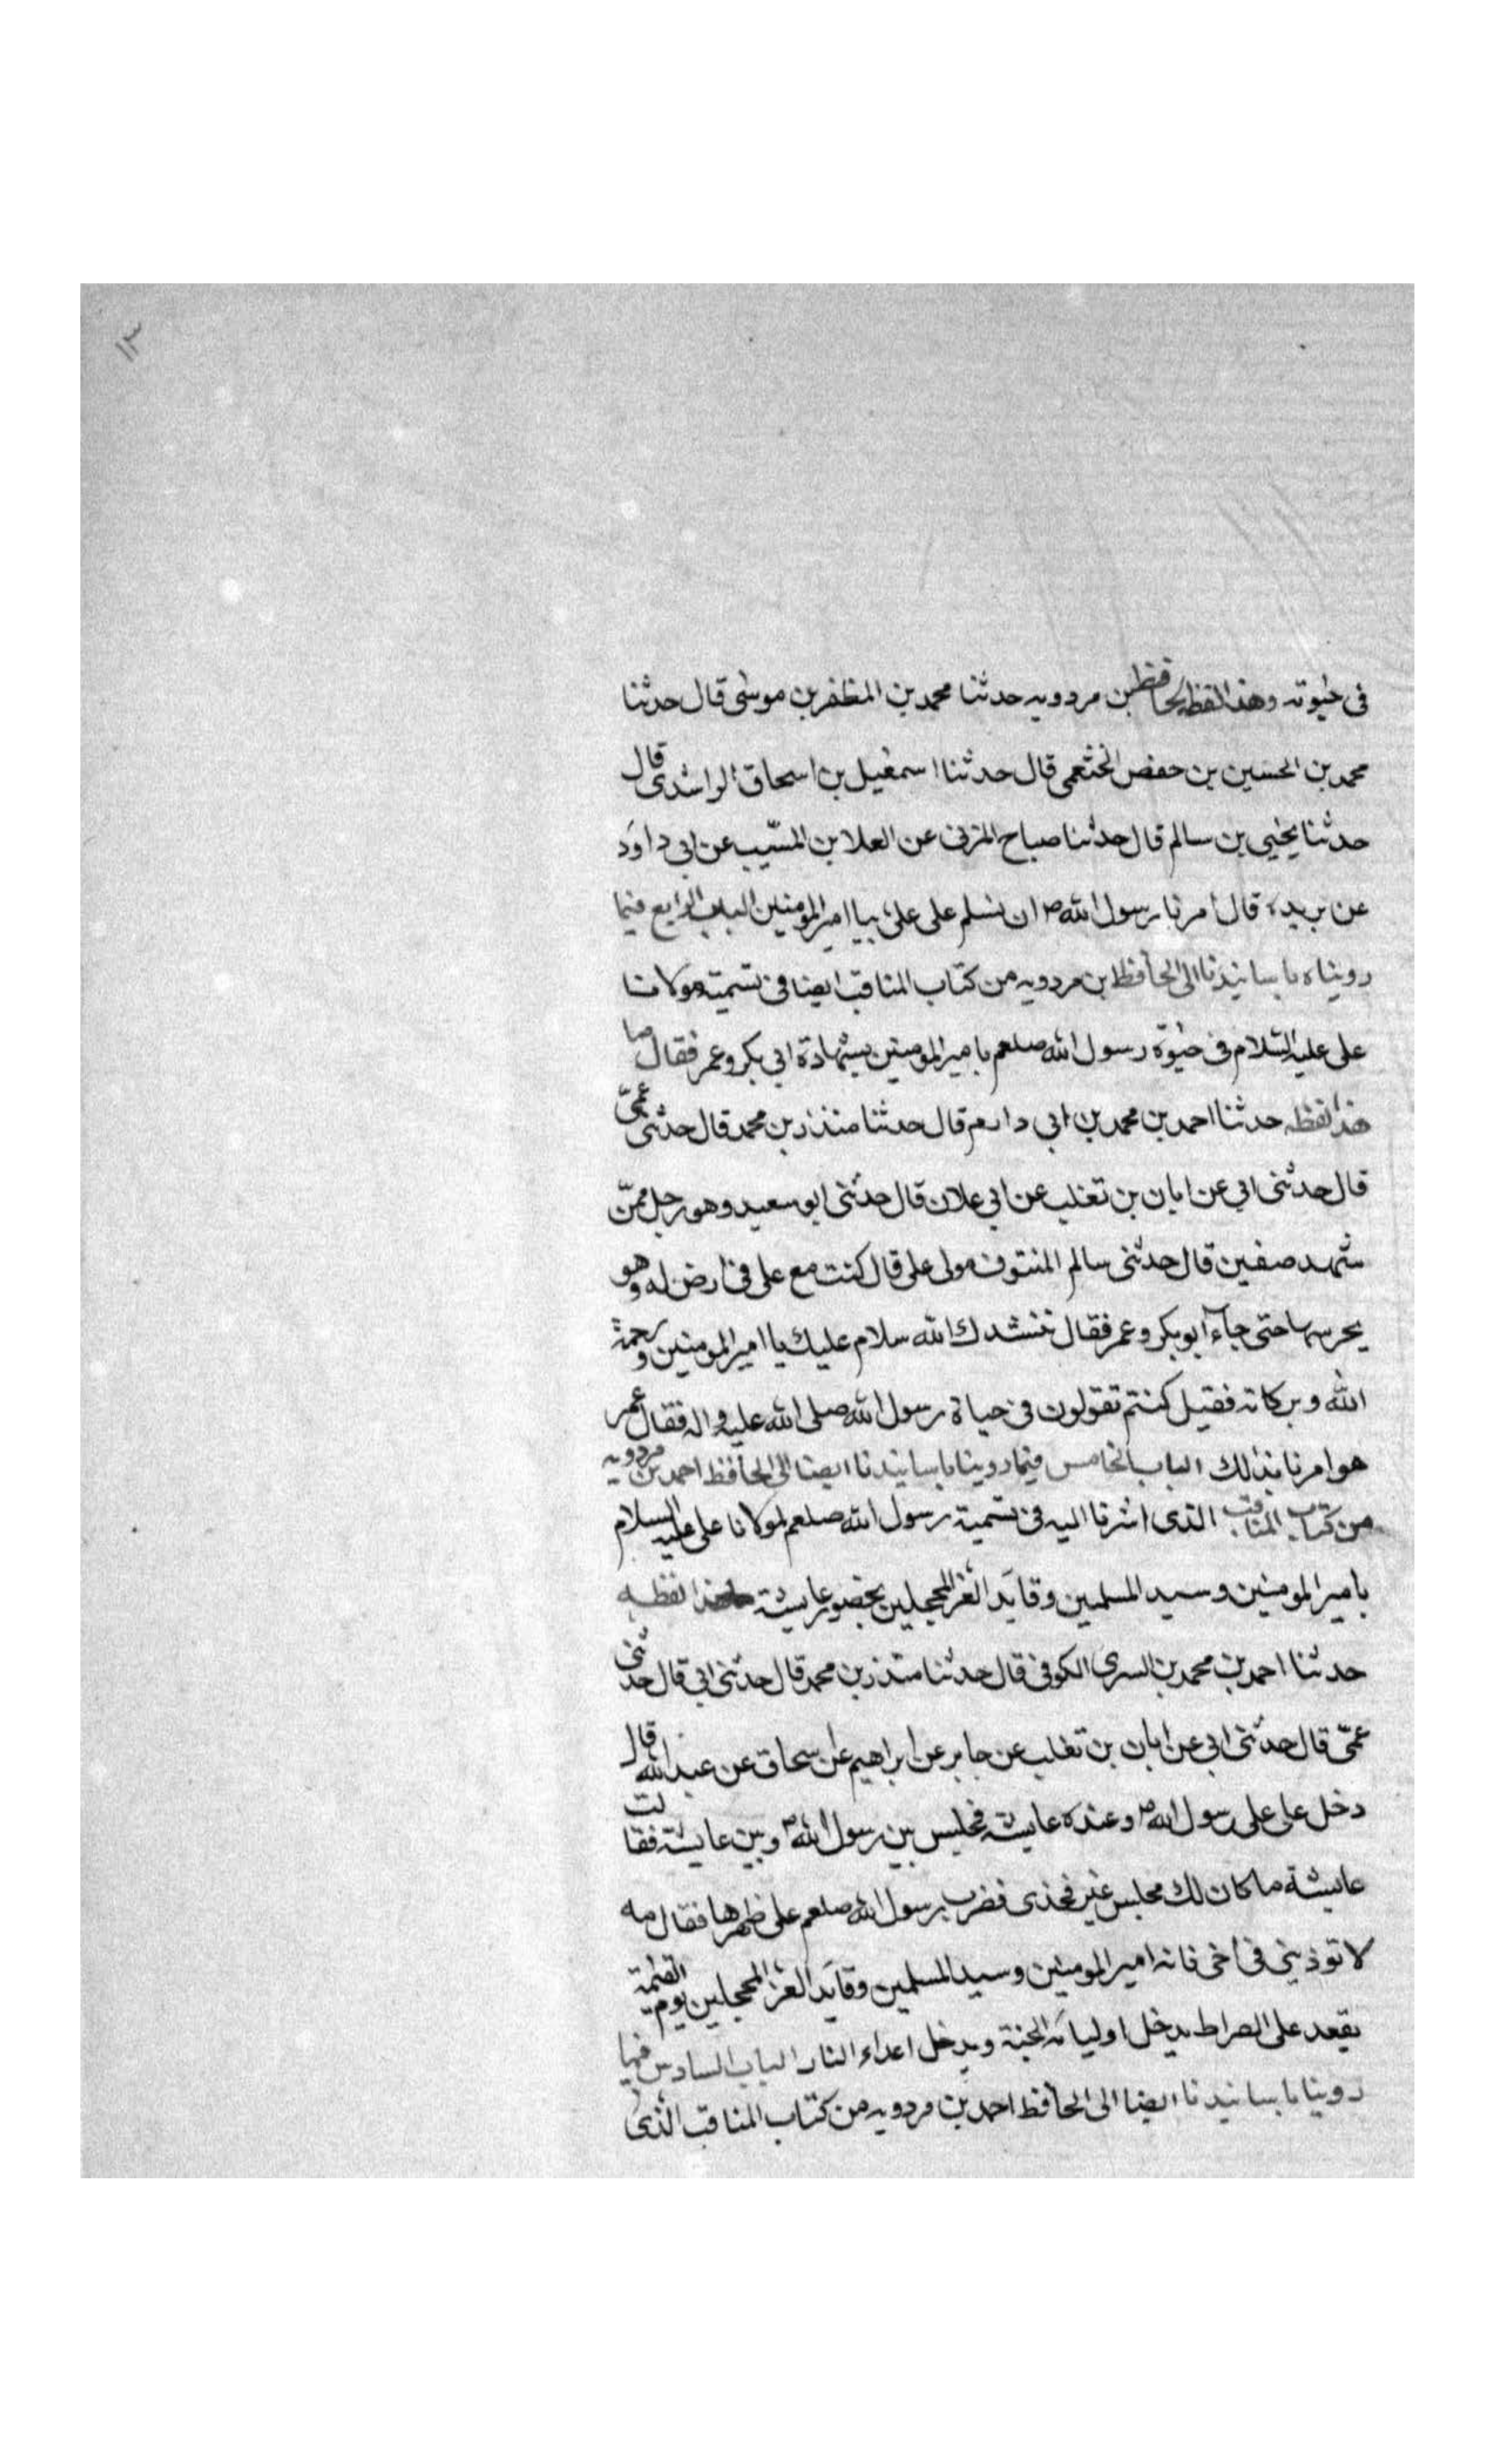 ١٣
في حيوته وهذا لفظ الحافظ بن مردويه حدثنا محمد بن المظفر بن موسى قال حدثنا
محمد بن الحسين بن حفص الخثعمي قال حدثنا اسمعيل بن اسحاق الراشدى قال
حدثنا يحيى بن سالم قال حدثنا صباح المزنى عن العلا بن المسيّب عن ابي داود
عن بريده قال أمرنا رسول الله ص ان نسلم على على بيا امير المومنين الباب الرابع فيما
رويناه باسانيدنا الى الحافظ بن مردويه من كتاب المناقب ايضا فى تسميته مولانا
على عليه السلام فى حيوة رسول الله صلعم بامير المومنين بشهادة ابي بكر وعمر فقال ما
هذا لفظه حدثنا احمد بن محمد بن ابي دارم قال حدثنا منذر بن محمد قال حدثنى عمّى
قال حدثنى ابي عن ابان بن تغلب عن ابي علان قال حدثنى ابو سعيد وهو رجل ممّن
شهد صفين قال حدثنى سالم المنتوف مولى على قال كنت مع على فى ارض له وهو
يحرسها حتى جاء ابو بكر وعمر فقال ننشدك الله سلام عليك يا امير المومنين ورحمة
الله وبركاته فقيل كنتم تقولون فى حياة رسول الله صلى الله عليه واله فقال عمر
هو امرنا بذلك الباب الخامس فيما روينا باسانيدنا ايضا الى الحافظ احمد بن مردويه
من كتاب المناقب الذى اشرنا اليه فى تسمية رسول الله صلعم لمولانا على عليه السلام
بامير المومنين وسيد المسلمين وقايد الغر المحجلين بحضور عايشة هذا لفظه
حدثنا احمد بن محمد بن السرى الكوفى قال حدثنا منذر بن محمد قال حدثنى ابي قال حدثنى
عمّى قال حدثنى ابي عن ابان بن تغلب عن جابر عن ابراهيم عن اسحاق عن عبد الله قال
دخل على على رسول الله ص وعنده عايشة فجلس بين رسول الله ص وبين عايشة فقالت
عايشة ما كان لك مجلس غير فخذى فضرب رسول الله صلعم على ظهرها فقال مه
لا توذينى فى اخى فانه امير المومنين وسيد المسلمين وقايد الغر المحجلين يوم القيمة
يقعد على الصراط يدخل اولياءه الجنة ويدخل اعداء النار الباب السادس فيما
روينا باسانيدنا ايضا الى الحافظ احمد بن مردويه من كتاب المناقب الذى